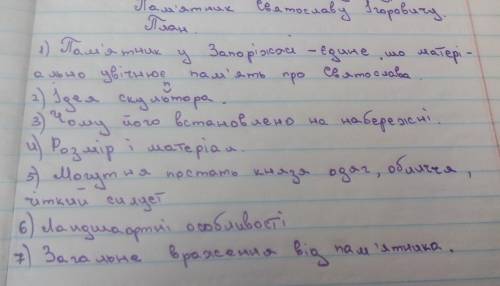 Пам'ятник Святославу Ігоровичу.
План.
1) Пам'ятник у Запоріжжі – єдине, що матері-
ально увічнює пам'ять про Святослава
2) Ідея скульптора.
3) Чому його встановлено на набережні.
4) Розмір і матеріал.
5) Могутня постать князя одяг, обличчя,
чіткий силует
6) Ландшафтні особливості
7) Загальне враження від пам'ятника.